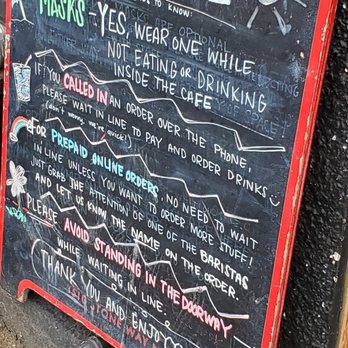 TO KNOW:
MASKS - YES, WEAR ONE WHILE
NOT EATING OR DRINKING
INSIDE THE CAFE
IF YOU CALLED IN AN ORDER OVER THE PHONE,
PLEASE WAIT IN LINE TO PAY AND ORDER DRINKS
(don't worry, we're quick!)
FOR PREPAID ONLINE ORDERS, NO NEED TO WAIT
IN LINE UNLESS YOU WANT TO ORDER MORE STUFF!
JUST GRAB THE ATTENTION OF ONE OF THE BARISTAS
AND LET US KNOW THE NAME ON THE ORDER.
PLEASE AVOID STANDING IN THE DOORWAY
WHILE WAITING IN LINE.
THANK YOU AND ENJOY